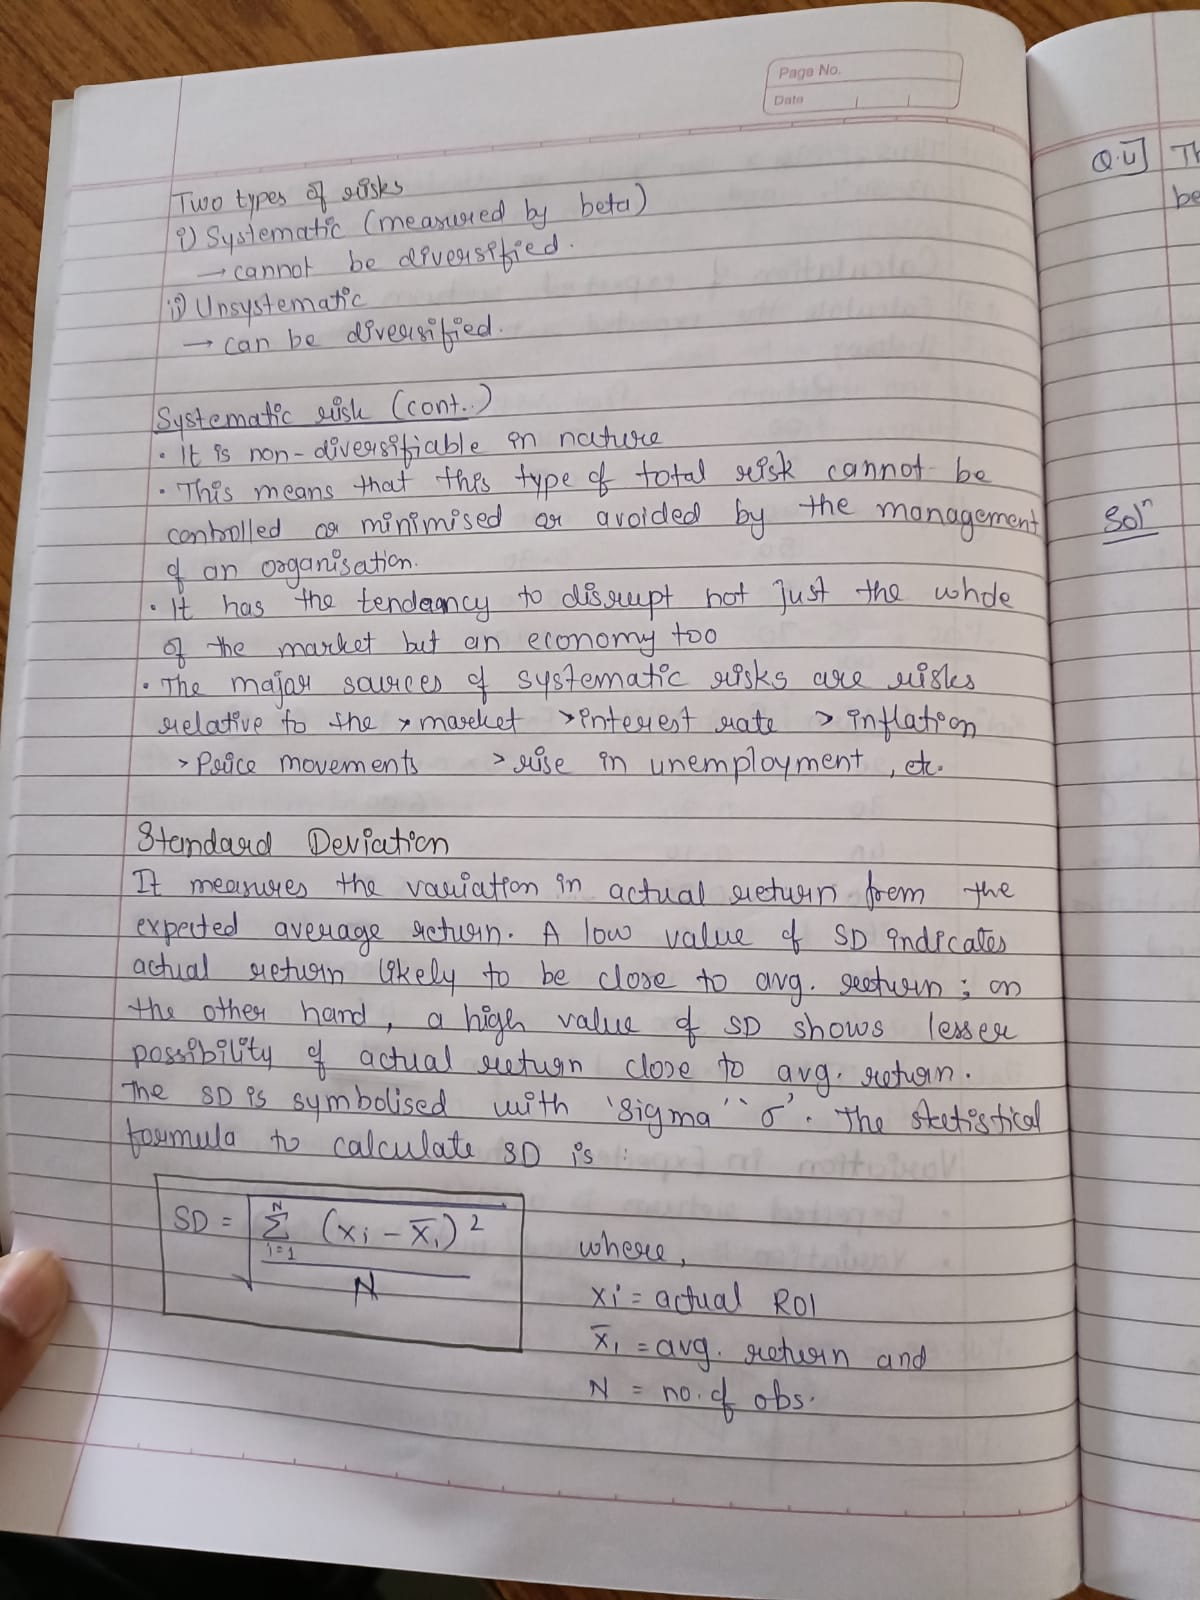 Page No.
Date
Two types of risks
i) Systematic (measured by beta)
→ cannot be diversified.
ii) Unsystematic
→ can be diversified.
Systematic risk (cont..)
• It is non-diversifiable in nature
• This means that this type of total risk cannot be
controlled or minimised or avoided by the management
of an organisation.
• It has the tendency to disrupt not just the whole
of the market but an economy too
• The major sources of systematic risks are risks
relative to the > market > interest rate > inflation
> Price movements > rise in unemployment, etc.
Standard Deviation
It measures the variation in actual return from the
expected average return. A low value of SD indicates
actual return likely to be close to avg. return; on
the other hand, a high value of SD shows lesser
possibility of actual return close to avg. return.
The SD is symbolised with 'sigma' 'σ'. The statistical
formula to calculate SD is :
SD = √(∑ᵢ₌₁ᴺ (xi - x̄ᵢ)² / N)
where,
xi = actual ROI
x̄ᵢ = avg. return and
N = no. of obs.
Q.4] Th
be
Solⁿ